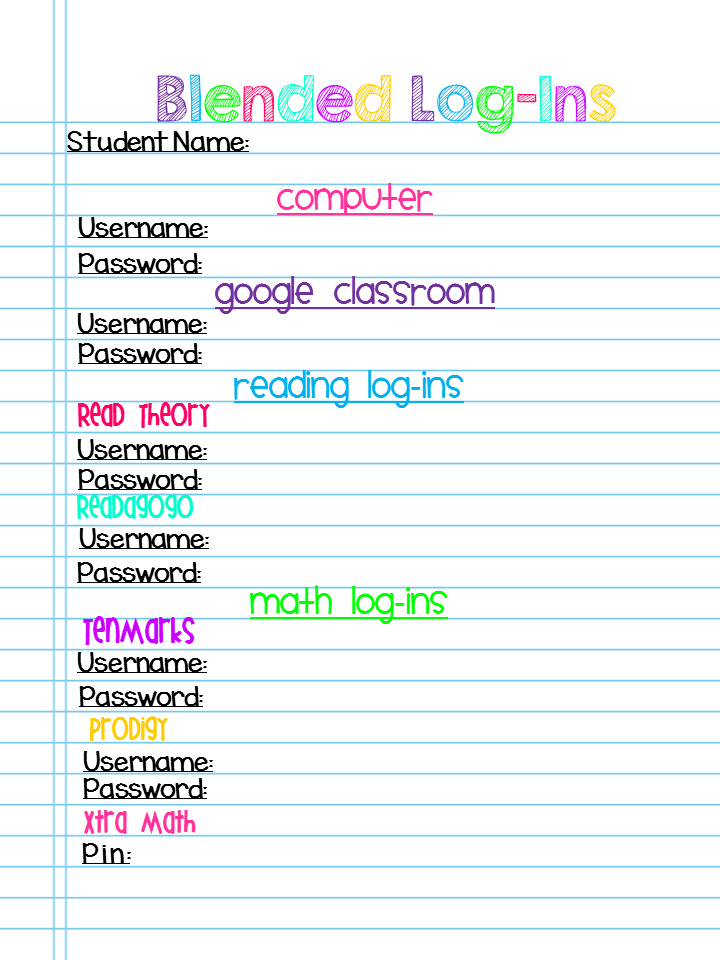 Blended Log-Ins
Student Name:
computer
Username:
Password:
google classroom
Username:
Password:
reading log-ins
Read Theory
Username:
Password:
Readagogo
Username:
Password:
math log-ins
TenMarks
Username:
Password:
Prodigy
Username:
Password:
Xtra Math
Pin: